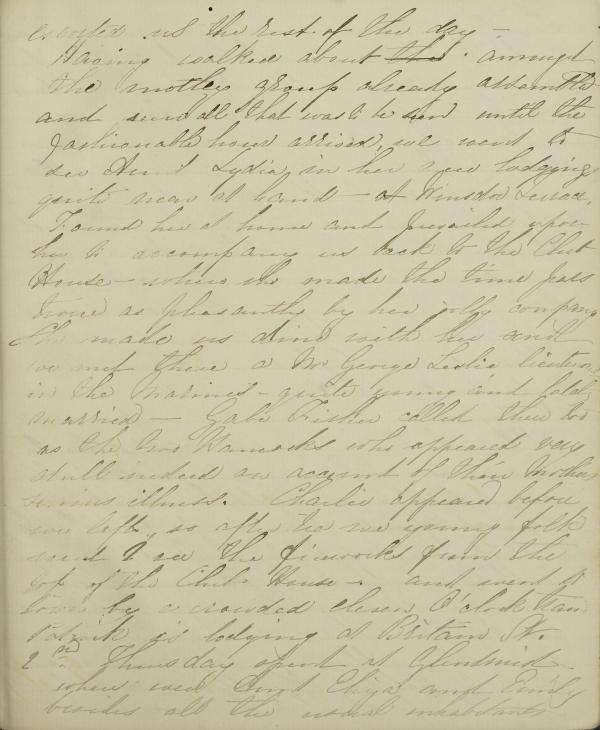 us the rest of the day —
Having walked about the amongst
the motley group already assembled
and seen all that was to be seen until the
fashionable hour arrived, we went to
see Aunt Lydia in her new lodging
quite near at hand — at Winsdor Terrace.
Found her at home and prevailed upon
her to accompany us back to the Club
House — where she made the time pass
twice as pleasantly by her jolly company
She made us dine with her and
we met there a Mr George Leslie lieutenant
in the Marines — quite young and
married — Gabe Fisher called there too
as the two Hancocks who appeared very
dull indeed on account of their Mothers
serious illness. Charlie appeared before
we left, so after tea we young folk
went to see the fireworks from the
top of the Club House — and went to
town by a crowded eleven O'clock train
Patrick is lodging at Britain St.
2nd Thursday spent at
where were Aunt Eliza and Emily
besides all the usual inhabitants